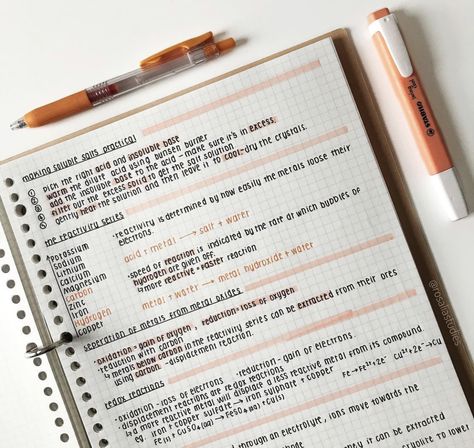 making soluble salts practical
① pick the right acid and insoluble base
② warm the dilute acid using bunsen burner
③ add the insoluble base to the acid - make sure it's in excess.
④ filter out the excess solid to get the salt solution
⑤ gently heat the solution and then leave it to cool - dry the crystals.
the reactivity series
potassium
sodium
lithium
calcium
magnesium
carbon
zinc
iron
hydrogen
copper
·reactivity is determined by how easily the metals loose their
electrons.
acid + metal → salt + water
·speed of reaction is indicated by the rate at which bubbles of
hydrogen are given off.
↳ more reactive = faster reaction
metal + water → metal hydroxide + water
seperation of metals from metal oxides
·oxidation = gain of oxygen ; reduction = loss of oxygen
·reduction with carbon
↳ metals below carbon in the reactivity series can be extracted from their ores
using carbon - displacement reaction.
redox reactions
·oxidation - loss of electrons ·reduction - gain of electrons
·displacement reactions are redox reactions.
↳ a more reactive metal will displace a less reactive metal from its compound.
eg. iron + copper sulfate → iron sulphate + copper
Fe(s) + CuSO₄(aq) → FeSO₄(aq) + Cu(s)
Fe → Fe²⁺ + 2e⁻ Cu²⁺ + 2e⁻ → Cu
through an electrolyte, ions move towards the
can be extracted
to lower
STABILO
swing cool
@rosaliastudies